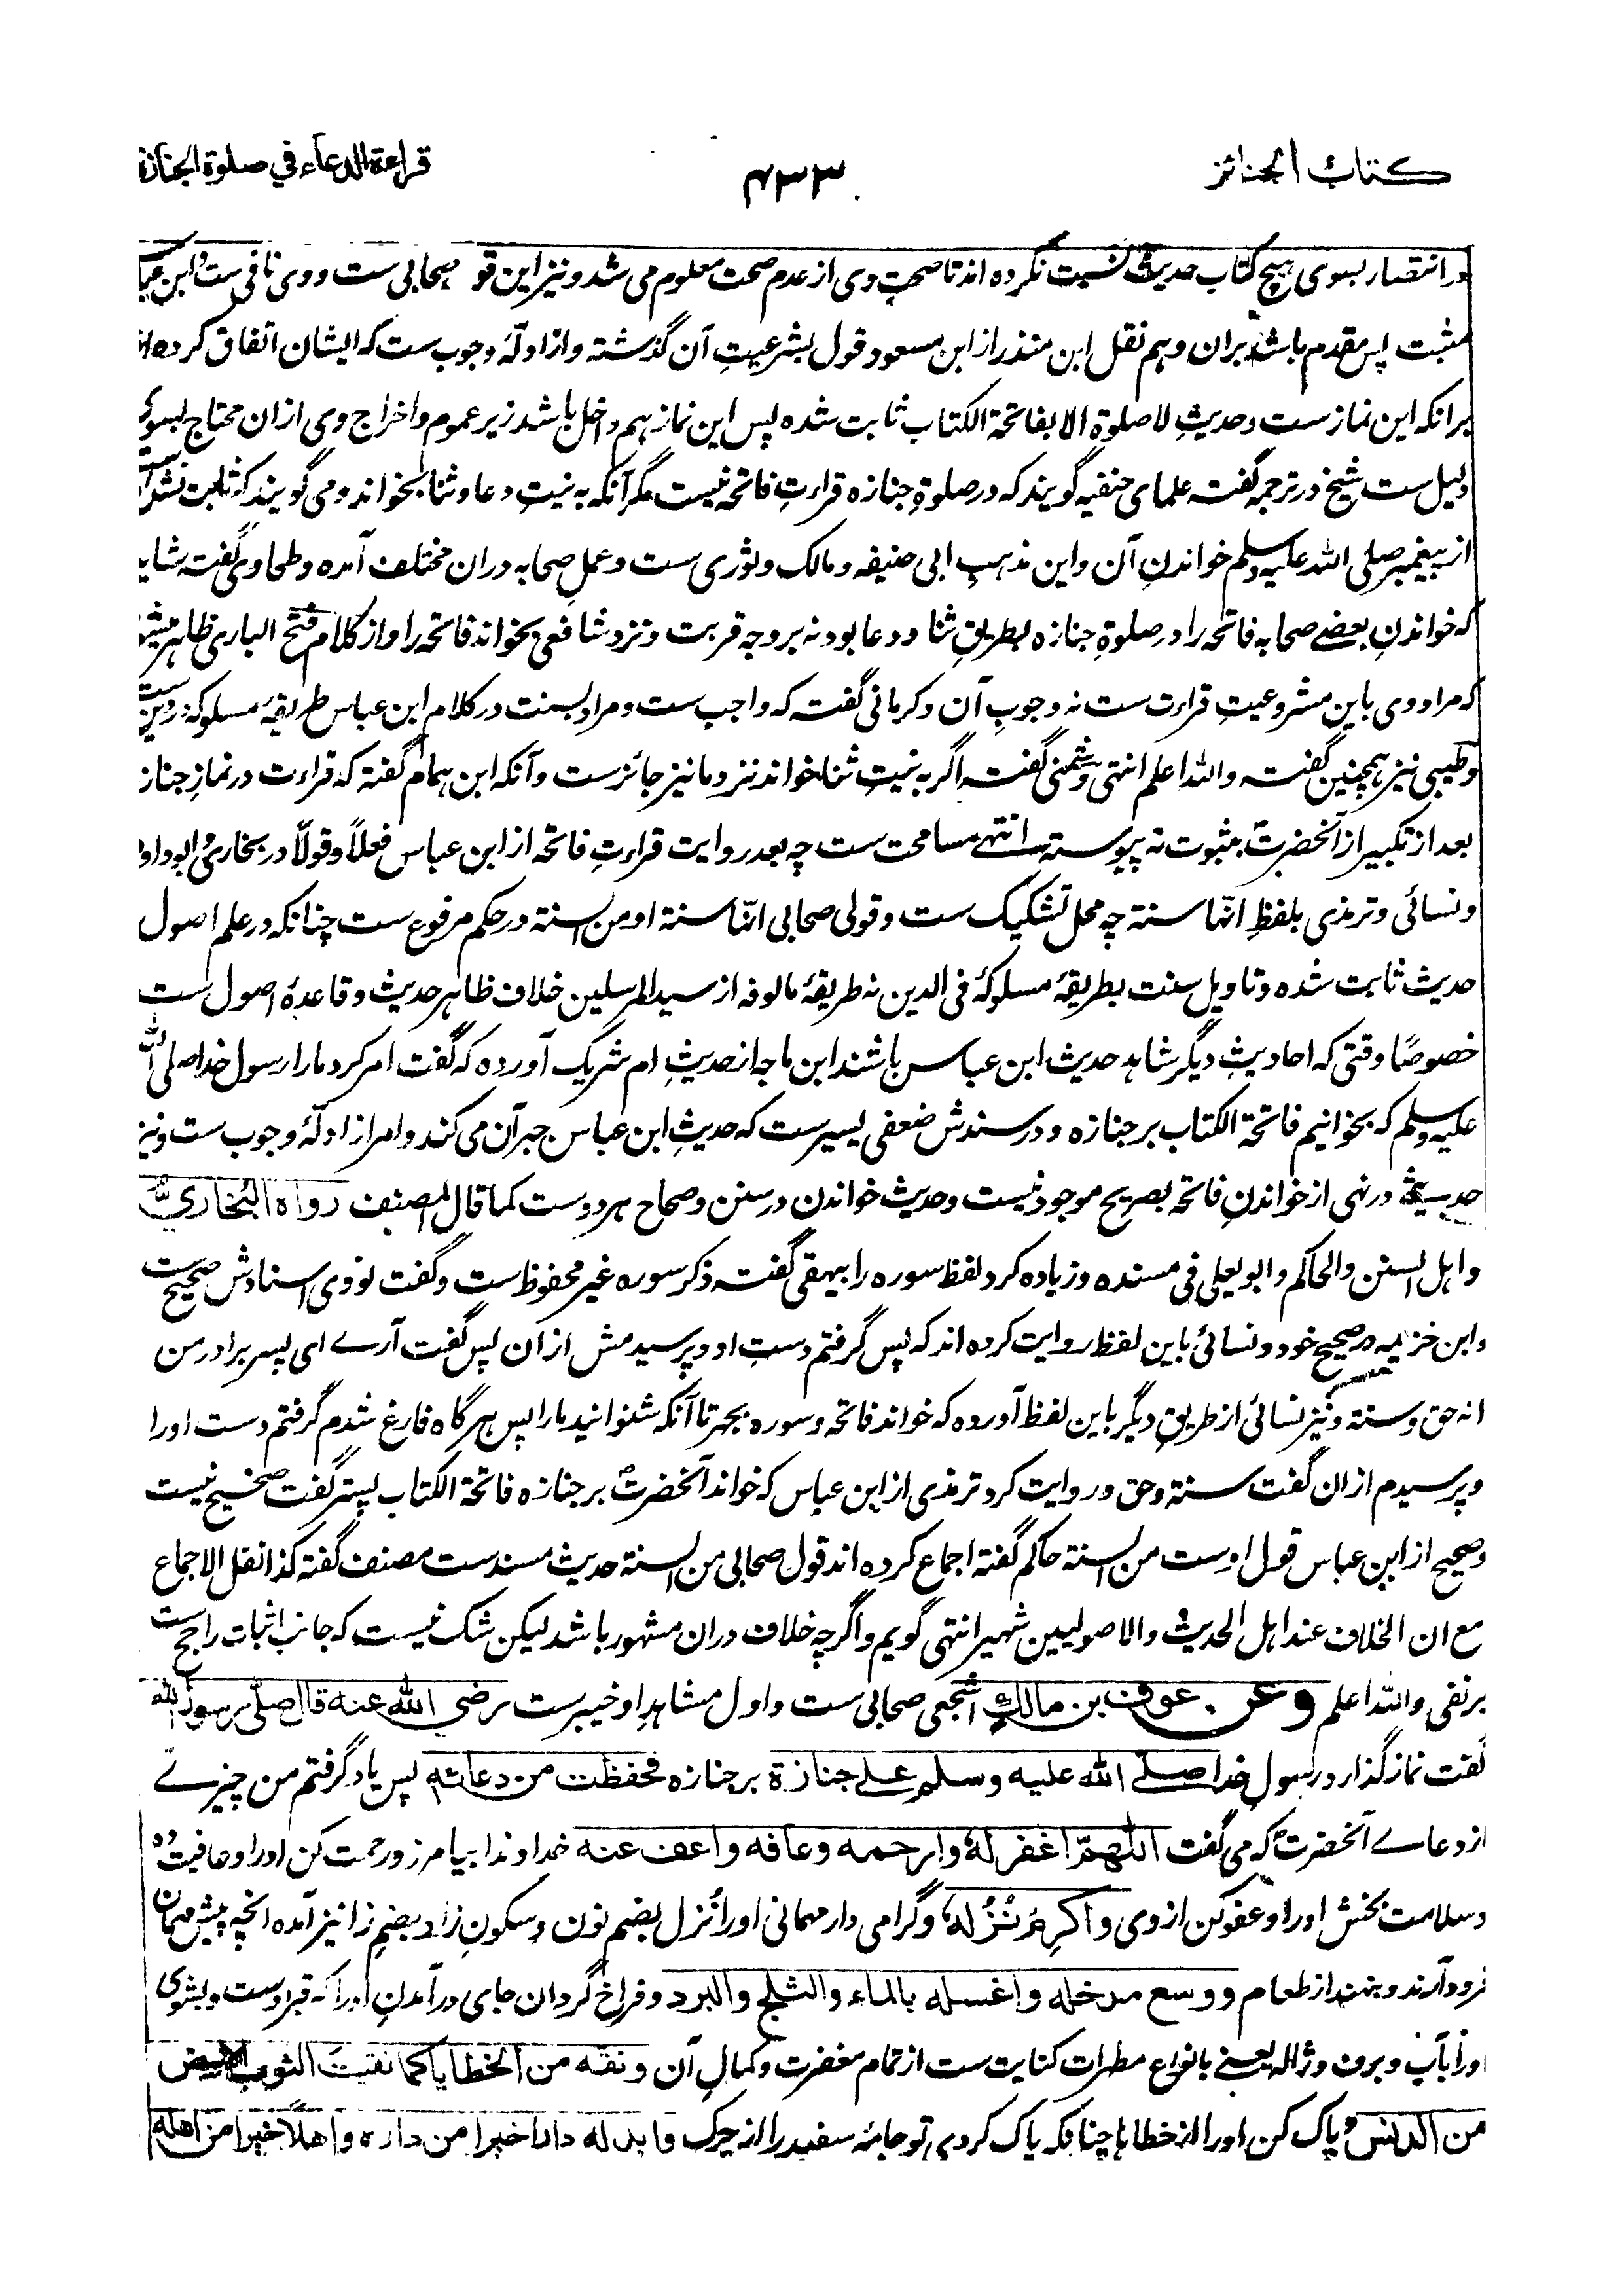 كتاب الجنائز
۴۳۳
قراءة الدعاء في صلوة الجنازة
در انتصار بسوی ہیچ کتاب حدیث نسبت نکرده اند تا صحت وی از عدم صحت معلوم می شد و نیز این قو صحابی ست و وی نافی ست و ابن عبا
مثبت پس مقدم باشد بران و ہم نقل ابن منذر از ابن مسعود قول بشرعیتِ آن گذشته و از ادلّهٔ وجوب ست که ایشان اتفاق کرده اند
برانکه این نماز ست و حدیثِ لا صلوة الا بفاتحة الکتاب ثابت شده پس این نماز ہم داخل باشد زیر عموم و اخراج وی ازان محتاج بسوی
دلیل ست شیخ در ترجمه گفته علمای حنفیه گویند که در صلوةِ جنازه قراءتِ فاتحه نیست مگر آنکه به نیتِ دعا و ثنا بخواند و می گویند که ثابت نشده است
از پیغمبر صلی الله علیه وسلم خواندنِ آن و این مذہبِ ابی حنیفه و مالک و ثوری ست و عملِ صحابه دران مختلف آمده و طحاوی گفته شاید
که خواندنِ بعضے صحابه فاتحه را در صلوةِ جنازه بطریقِ ثنا و دعا بود نه بر وجه قربت و نزد شافعی بخواند فاتحه را و از کلام فتح الباری ظاہر میشود
که مراد وی باین مشروعیتِ قراءت ست نه وجوبِ آن و کرمانی گفته که واجب ست و مراد بسنت در کلام ابن عباس طریقهٔ مسلوکه در دین ست
و طیبی نیز ہمچنین گفته والله اعلم انتہی و شمنی گفته اگر به نیتِ ثنا خواند نزد ما نیز جائزست و آنکه ابن ہمام گفته که قراءت در نمازِ جنازه
بعد از تکبیر از آنحضرتؐ بثبوت نه پیوسته انتہے مسامحت ست چه بعد روایت قراءتِ فاتحه از ابن عباس فعلاً و قولاً در بخاری و ابو داود
و نسائی و ترمذی بلفظِ انّها سنة چه محل تشکیک ست و قولی صحابی انّها سنة او من السنة در حکم مرفوع ست چنانکه در علم اصول
حدیث ثابت شده و تاویل سنت بطریقهٔ مسلوکهٔ فی الدین نه طریقهٔ مالوفه از سید المرسلین خلاف ظاہر حدیث و قاعدهٔ اصول ست
خصوصًا وقتی که احادیثِ دیگر شاہد حدیث ابن عباس باشند ابن ماجه از حدیثِ ام شریک آورده که گفت امر کرد مارا رسول خدا صلی الله
علیه وسلم که بخوانیم فاتحة الکتاب بر جنازه و در سندش ضعفی یسیر ست که حدیثِ ابن عباس جبر آن می کند و امر از ادلّهٔ وجوب ست و نیز
حدیثے در نہی از خواندنِ فاتحه بصریح موجود نیست و حدیث خواندن در سنن و صحاح ہر دوست کما قال المصنف رواه البخاريُّ
و اہل السنن والحاکم و ابو یعلی فی مسنده و زیاده کرد لفظ سوره را بیہقی گفته ذکر سوره غیر محفوظ ست و گفت نووی اسنادش صحیح ست
و ابن خزیمه در صحیح خود و نسائی باین لفظ روایت کرده اند که پس گرفتم دستِ او و پرسیدمش ازان پس گفت آرے ای پسر برادر من
انه حق و سنة و نیز نسائی از طریقِ دیگر باین لفظ آورده که خواند فاتحه و سوره بجہر تا آنکه شنوانید مارا پس ہرگاه فارغ شدم گرفتم دست او را
و پرسیدم ازان گفت سنة و حق و روایت کرد ترمذی از ابن عباس که خواند آنحضرتؐ بر جنازه فاتحة الکتاب پستر گفت صحیح نیست
و صحیح از ابن عباس قول اوست من السنة حاکم گفته اجماع کرده اند قول صحابی من السنة حدیث مسندست مصنف گفته کذا نقل الاجماع
مع ان الخلاف عند اہل الحدیث والاصولیین شہیر انتہی گویم و اگرچه خلاف دران مشہور باشد لیکن شک نیست که جانب اثبات راجح ست
بر نفی والله اعلم وعن عوف بن مالكٍ اشجعی صحابی ست و اول مشاہدِ او خیبرست رضي الله عنه قال صلّى رسول الله
گفت نماز گذارد رسول خدا صلے الله علیه وسلم على جنازة بر جنازه فحفظت من دعائه پس یاد گرفتم من چیزے
از دعاے آنحضرتؐ که می گفت اللهمّ اغفر له وارحمه وعافه واعف عنه خداوندا بیامرز و رحمت کن او را و عافیت ده
و سلامت بخش او را و عفو کن از وی وأكرِم نُزُله و گرامی دار مہمانی او را نُزل بضم نون و سکونِ زا و بضمِ زا نیز آمده انچه پیش مہمان
فرود آرند و بنہند از طعام ووسع مدخله واغسله بالماء والثلج والبرد و فراخ گردان جای در آمدنِ او را که قبر اوست و بشوی
او را بآب و برف و ژاله یعنے بانواعِ مطہرات کنایت ست از تمام مغفرت و کمالِ آن ونقّه من الخطايا كما نقيتَ الثوبَ الابيض
من الدنس و پاک کن او را از خطاہا چنانکه پاک کردی تو جامهٔ سفید را از چرک وابدله دارا خيرا من داره واهلاً خيرا من اهله